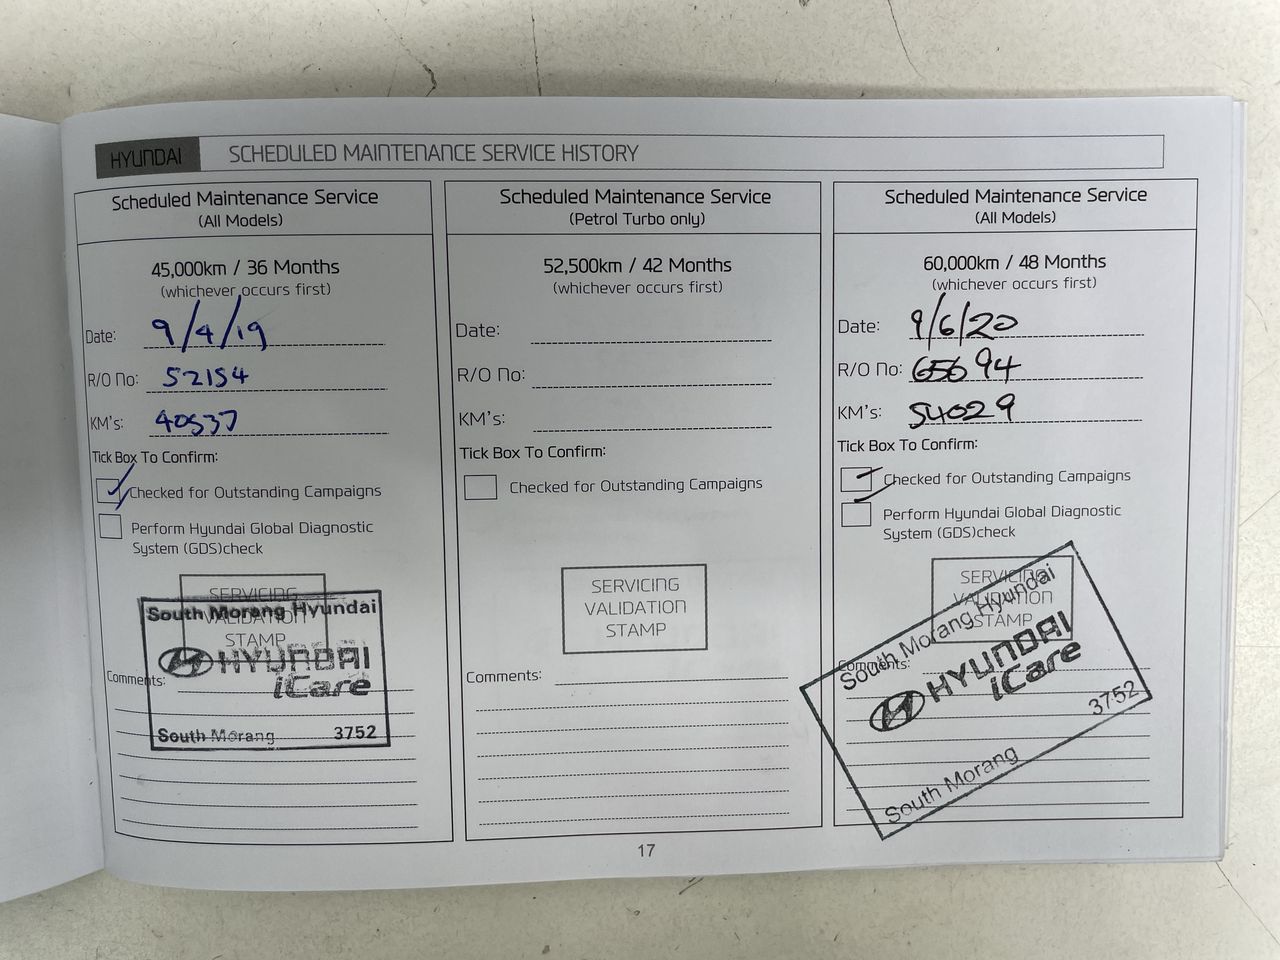 HYUNDAI SCHEDULED MAINTENANCE SERVICE HISTORY
Scheduled Maintenance Service
(All Models)
45,000km / 36 Months
(whichever occurs first)
Date: 9/4/19
R/O No: 52154
KM's: 40537
Tick Box To Confirm:
Checked for Outstanding Campaigns
Perform Hyundai Global Diagnostic
System (GDS)check
SERVICING
VALIDATION
STAMP
South Morang Hyundai
HYUNDAI
iCare
Comments:
South Morang 3752
Scheduled Maintenance Service
(Petrol Turbo only)
52,500km / 42 Months
(whichever occurs first)
Date:
R/O No:
KM's:
Tick Box To Confirm:
Checked for Outstanding Campaigns
SERVICING
VALIDATION
STAMP
Comments:
Scheduled Maintenance Service
(All Models)
60,000km / 48 Months
(whichever occurs first)
Date: 9/6/20
R/O No: 65694
KM's: 54029
Tick Box To Confirm:
Checked for Outstanding Campaigns
Perform Hyundai Global Diagnostic
System (GDS)check
SERVICING
VALIDATION
STAMP
Comments:
South Morang Hyundai
HYUNDAI
iCare
South Morang 3752
17